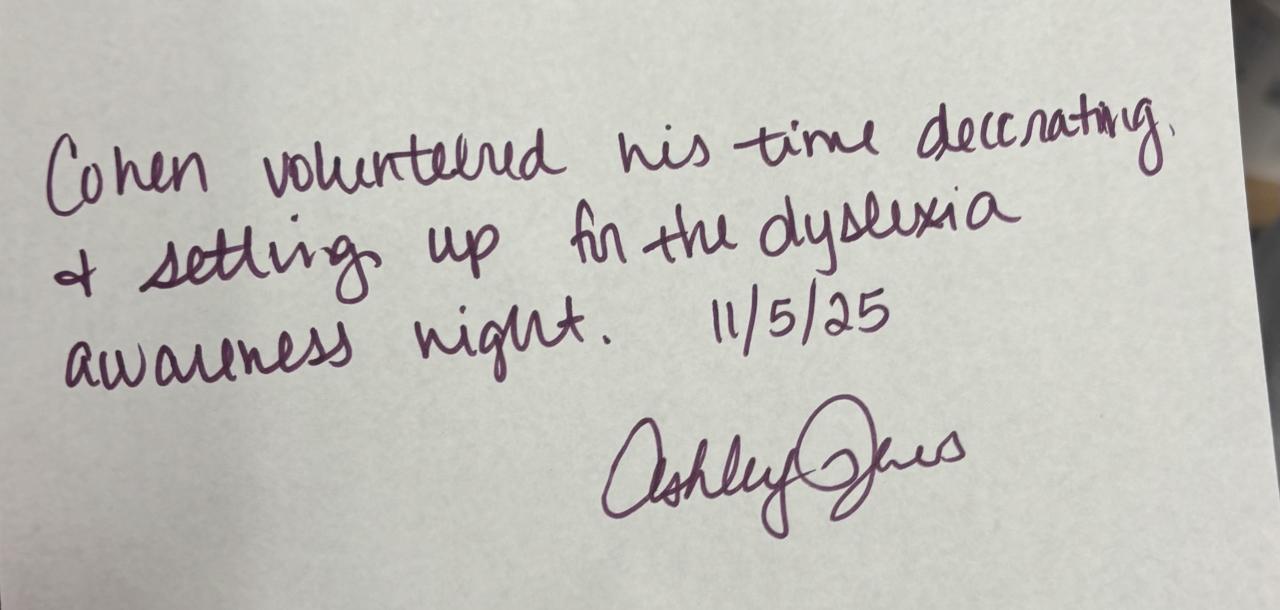 Cohen volunteered his time decorating
& setting up for the dyslexia
awareness night. 11/5/25
Ashley Jones